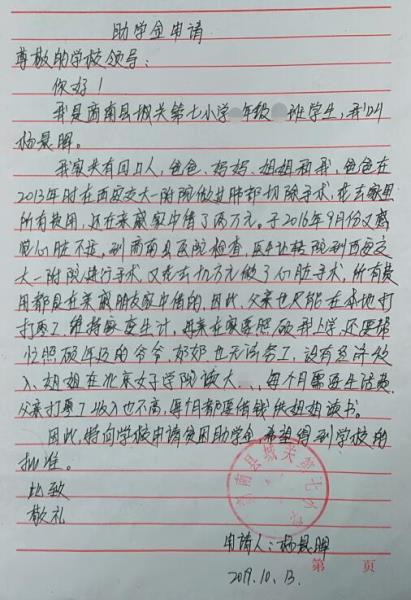 助学金申请
尊敬的学校领导：
你好！
我是商南县城关第七小学 年级 班学生，我叫
杨景晖。
我家共有四口人，爸爸、妈妈、姐姐和我，爸爸在
2013年时在西安交大一附院做过肺部切除手术，花去家里
所有费用，还在亲戚家中借了两万元。于2016年9月份又感
觉心脏不适，到商南县医院检查，医生让转院到西安交
大一附院进行手术，又花去 万元做了心脏手术，所有费
用都是在亲戚朋友家中借的，因此，父亲也只能在本地打
打零工，维持家庭生计，母亲在家要照顾我上学，还要
照顾年迈的爷爷、奶奶也无法务工，没有经济收
入，姐姐在北京女子学院读大 ，每个月需要生活费，
父亲打零工收入也不高，每个月都要借钱供姐姐读书。
因此，特向学校申请贫困助学金，希望得到学校的
批准。
此致
敬礼
商南县城关第七小学
申请人：杨景晖
2019.10.13.
第 页